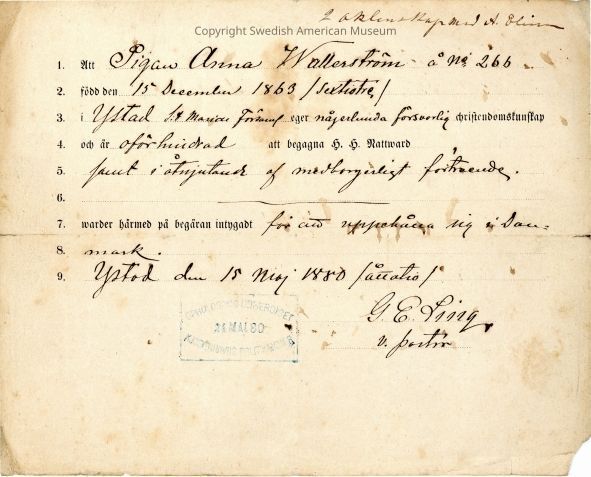 Copyright Swedish American Museum
2 med A.
1. Att Pigan Anna Wallerström å No 266
2. född den 15 December 1863 / Sextiotre /
3. i Ystad S:t Mariae Förs. eger någerlunda försvarlig christendomskunskap
4. och är oförhindrad att begagna H. H. Nattward
5. samt i åtnjutande af medborgerligt förtroende.
6.
7. warder härmed på begäran intygadt för att uppehålla sig i Dan-
8. mark.
9. Ystad den 15 Maj 1880 / åttatio /
G. E. Ling
v. pastor
24 MAI. 80